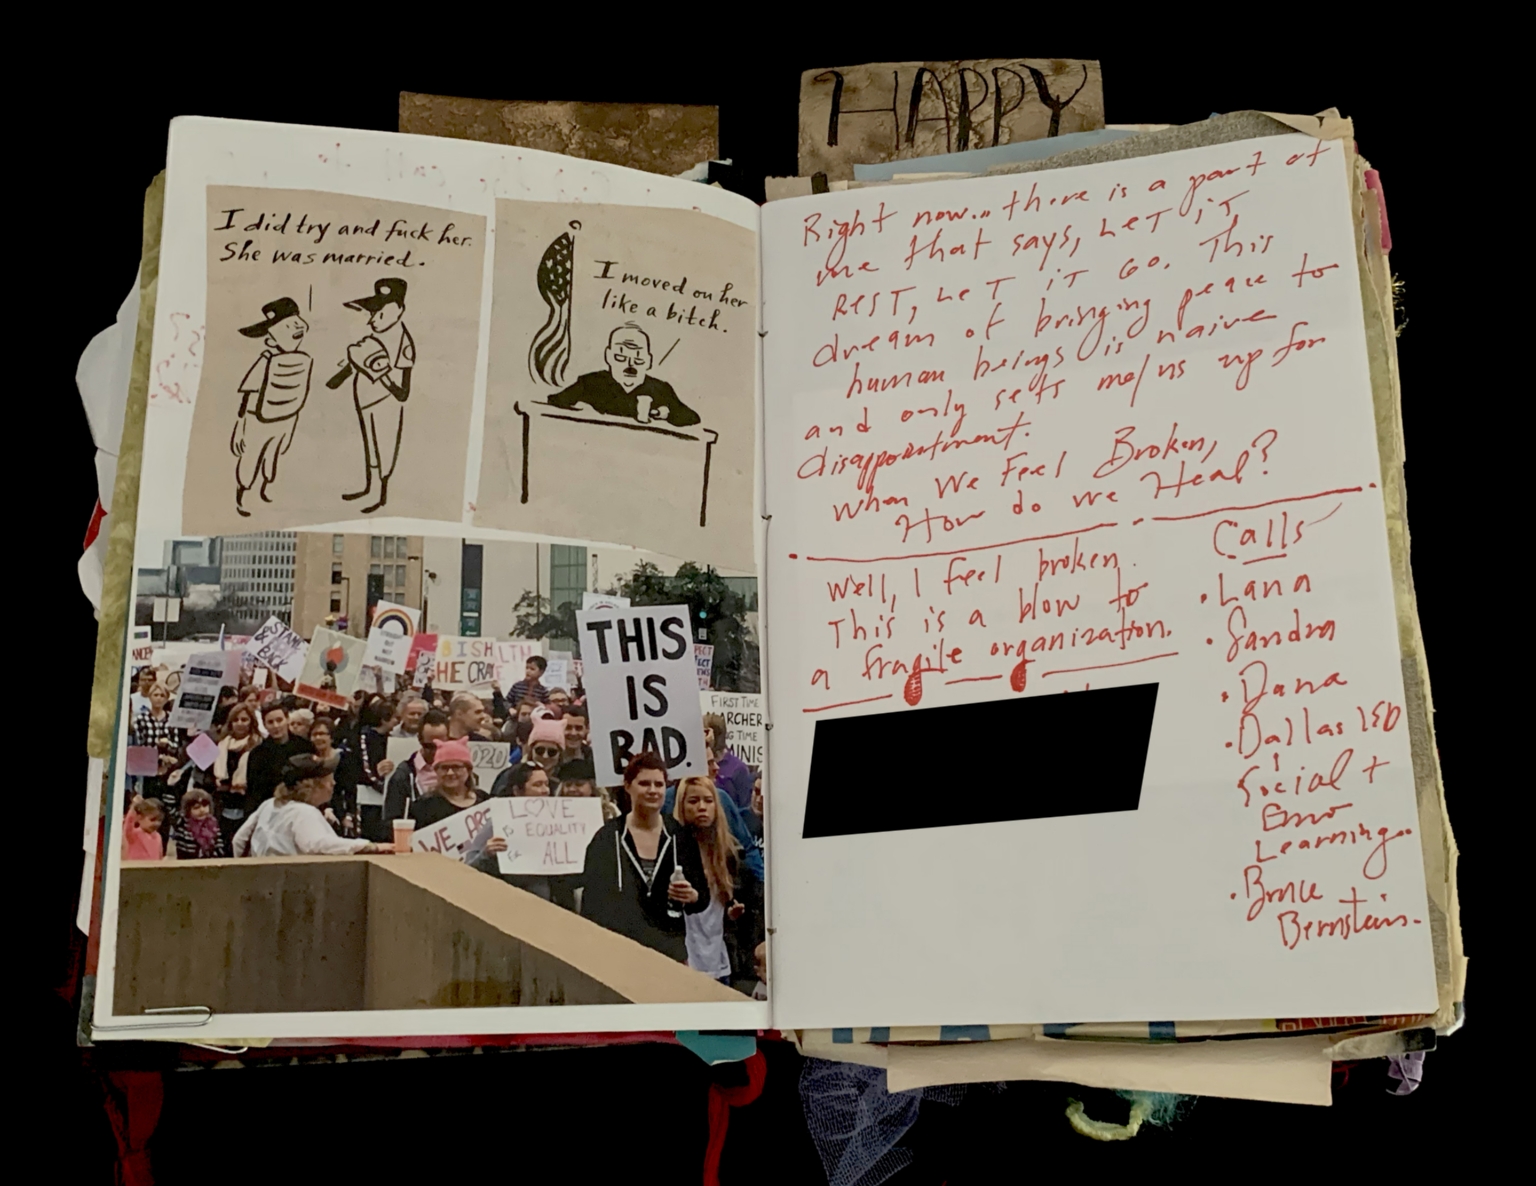 HAPPY
I did try and fuck her.
She was married.
I moved on her
like a bitch.
THIS
IS
BAD.
HE CRA
2020
FIRST TIME
ARCHER
NG TIME
MINIS
WE ARE
LOVE
EQUALITY
ALL
Right now... there is a part of
me that says, LET iT
REST, LET iT GO. This
dream of bringing peace to
human beings is naive
and only sets me/us up for
disappointment.
When We Feel Broken,
How do we Heal?
Well, I feel broken.
This is a blow to
a fragile organization.
Calls
• Lana
• Sandra
• Dana
• Dallas ISD
Social +
Emo
Learning..
• Bruce
Bernstein.